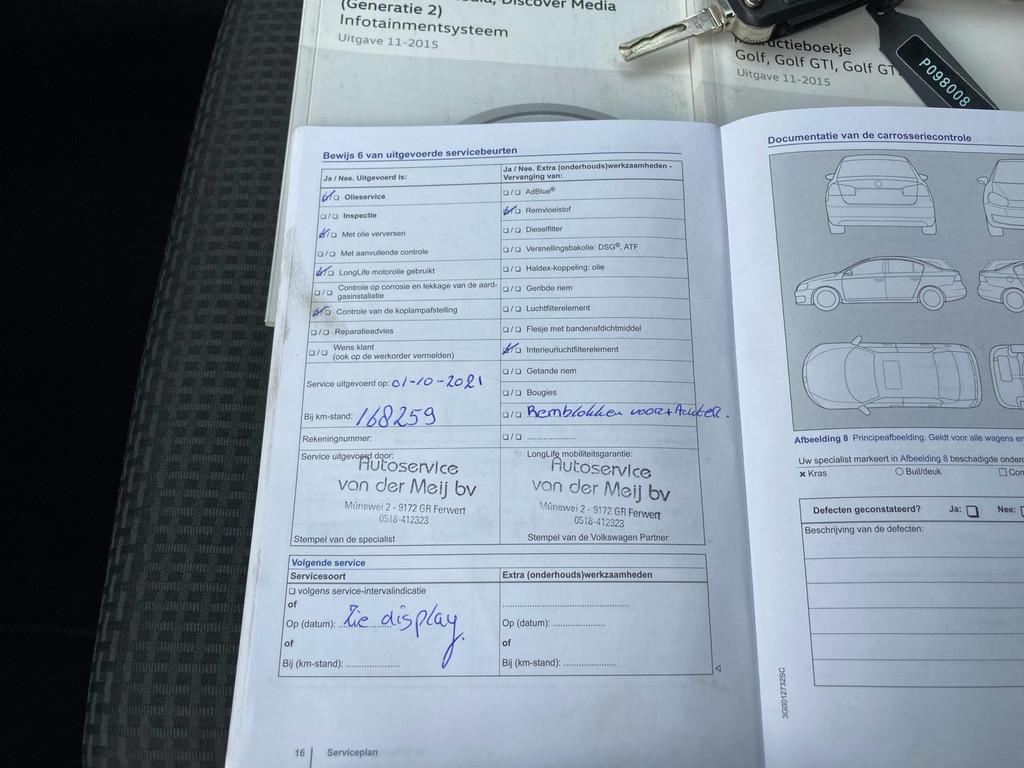 Discover Media
(Generatie 2)
Infotainmentsysteem
Uitgave 11-2015
Golf, Golf GTI, Golf
Uitgave 11-2015
P098008
Bewijs 6 van uitgevoerde servicebeurten
Ja / Nee. Uitgevoerd is:
Olieservice
Inspectie
Met olie verversen
Met aanvullende controle
LongLife motorolie gebruikt
Controle op corrosie en lekkage van de aard-
gasinstallatie
Controle van de koplampafstelling
Reparatieadvies
Wens klant
(ook op de werkorder vermelden)
Service uitgevoerd op: 01-10-2021
Bij km-stand: 168259
Rekeningnummer:
Service uitgevoerd door:
Autoservice
van der Meij bv
Mûnewei 2 - 9172 GR Ferwert
0518-412323
Stempel van de specialist
Ja / Nee. Extra (onderhouds)werkzaamheden -
Vervanging van:
AdBlue®
Remvloeistof
Dieselfilter
Versnellingsbakolie: DSG®, ATF
Haldex-koppeling: olie
Geribde riem
Luchtfilterelement
Flesje met bandenafdichtmiddel
Interieurluchtfilterelement
Getande riem
Bougies
Remblokken voor+Achter.
LongLife mobiliteitsgarantie:
Autoservice
van der Meij bv
Mûnewei 2 - 9172 GR Ferwert
0518-412323
Stempel van de Volkswagen Partner
Volgende service
Servicesoort
volgens service-intervalindicatie
of
Op (datum): Zie display.
of
Bij (km-stand):
Extra (onderhouds)werkzaamheden
Op (datum):
of
Bij (km-stand):
16 Serviceplan
Documentatie van de carrosseriecontrole
Afbeelding 8 Principeafbeelding. Geldt voor alle wagens
Uw specialist markeert in Afbeelding 8 beschadigde
Kras
Buil/deuk
Defecten geconstateerd? Ja: Nee:
Beschrijving van de defecten:
3G0012732SC